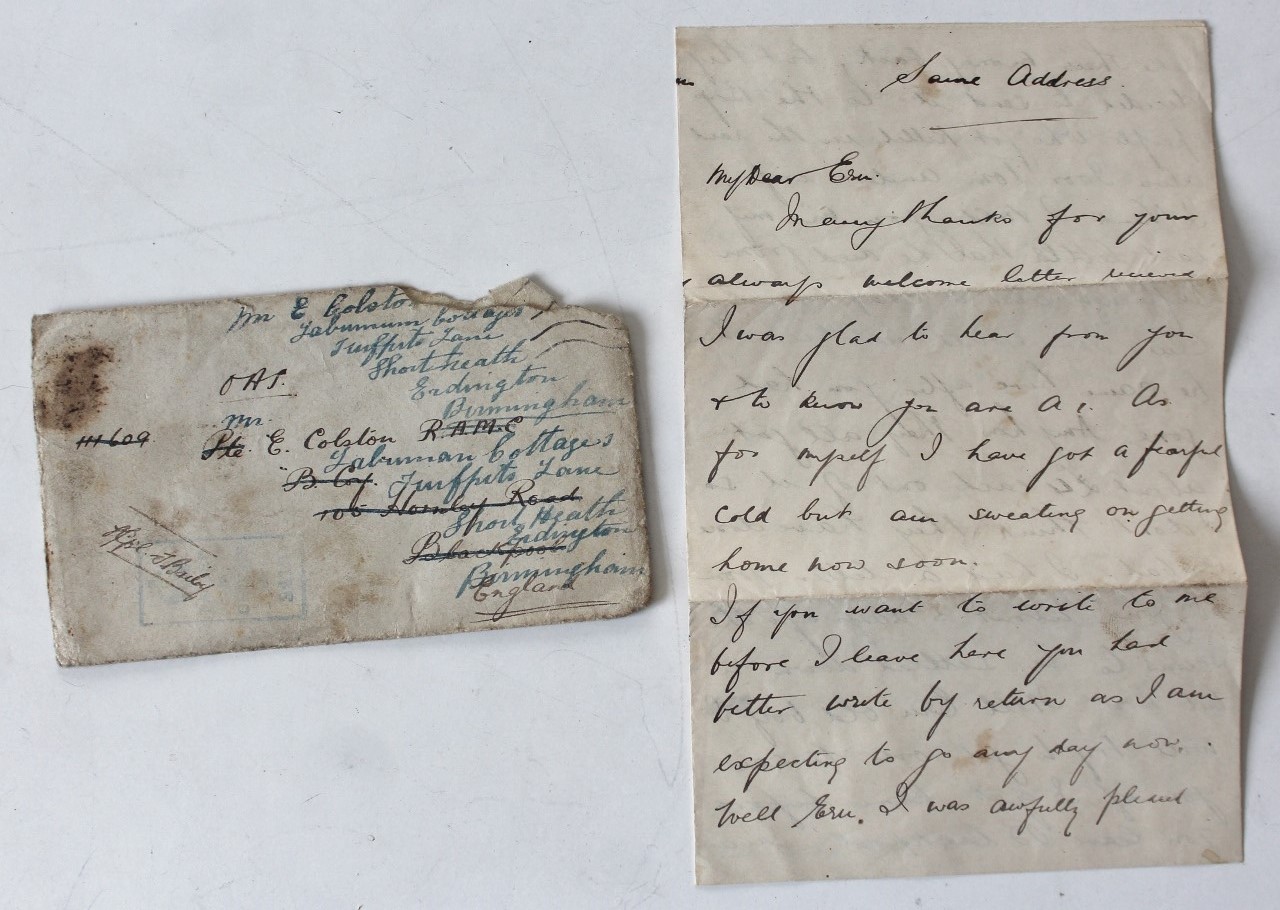 Mr E Colston
Laburnum Cottages
Turfpits Lane
Short Heath
Erdington
Birmingham
OAS.
Mr.
111609 Pte. E. Colston R.A.M.C
Laburnan Cottages
B. Coy. Turfpits Lane
106 Hornby Road
Short Heath
Erdington
Blackpool
Birmingham
England
Same Address.
My Dear Ern.
Many thanks for your
always welcome letter recieved.
I was glad to hear from you
& to know you are A1. As
for myself I have got a fearful
cold but am sweating on getting
home now soon.
If you want to write to me
before I leave here you had
better write by return as I am
expecting to go any day now.
Well Ern. I was awfully pleased